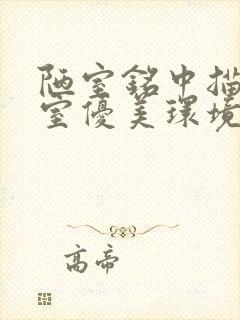 陋室銘中描
室優美環境
高帝